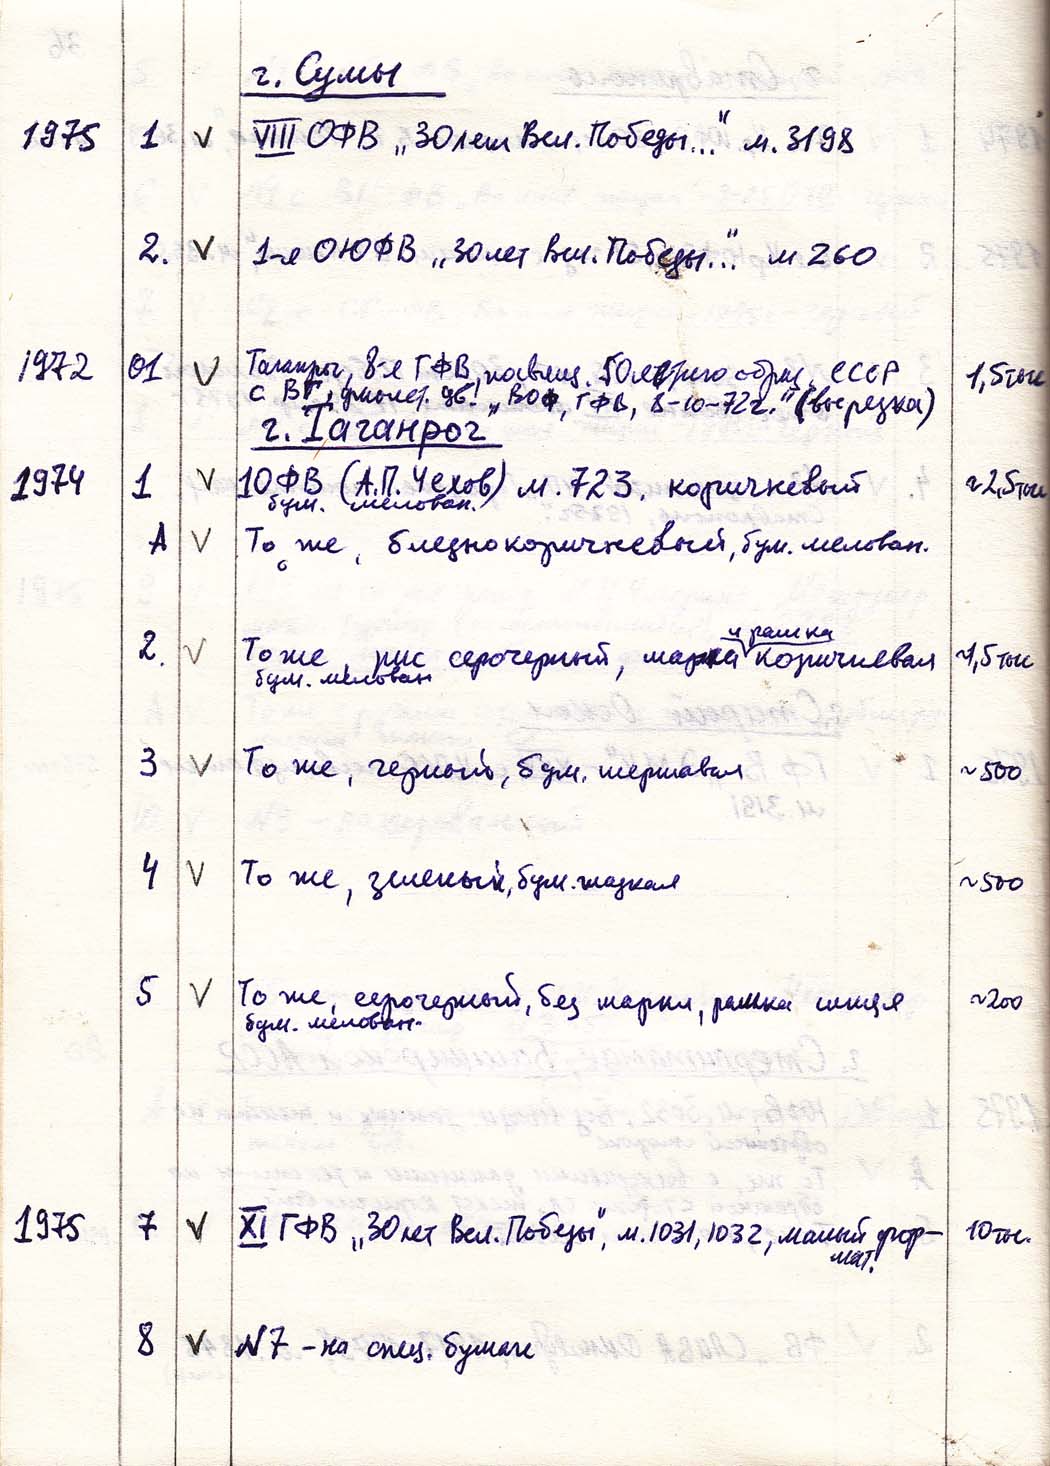 г. Сумы
1975 1 V VIII ОФВ „30 лет Вел. Победы..." м. 3198
2. V 1-я ОЮФВ „30 лет Вел. Победы..." м 260
1972 01 V Таганрог, 8-я ГФВ, посвящ. 50летию образ. СССР 1,5 тыс
с ВГ, фиолет. "ВОФ, ГФВ, 8-10-72г." (вырезка)
г. Таганрог
1974 1 V 10ФВ (А.П. Чехов) м. 723, коричневый ~2,5 тыс
бум. мелован.
А V То же, бледнокоричневый, бум. мелован.
и рамка
2. V То же, рис серочерный, марка коричневая ~1,5 тыс
бум. мелован
3 V То же, черный, бум. шершавая ~500
4 V То же, зеленый, бум. гладкая ~500
5 V То же, серочерный, без марки, рамка синяя ~200
бум. мелован.
1975 7 V XI ГФВ „30 лет Вел. Победы", м. 1031, 1032, малый фор- 10 тыс.
мат.
8 V N7 - на спец. бумаге